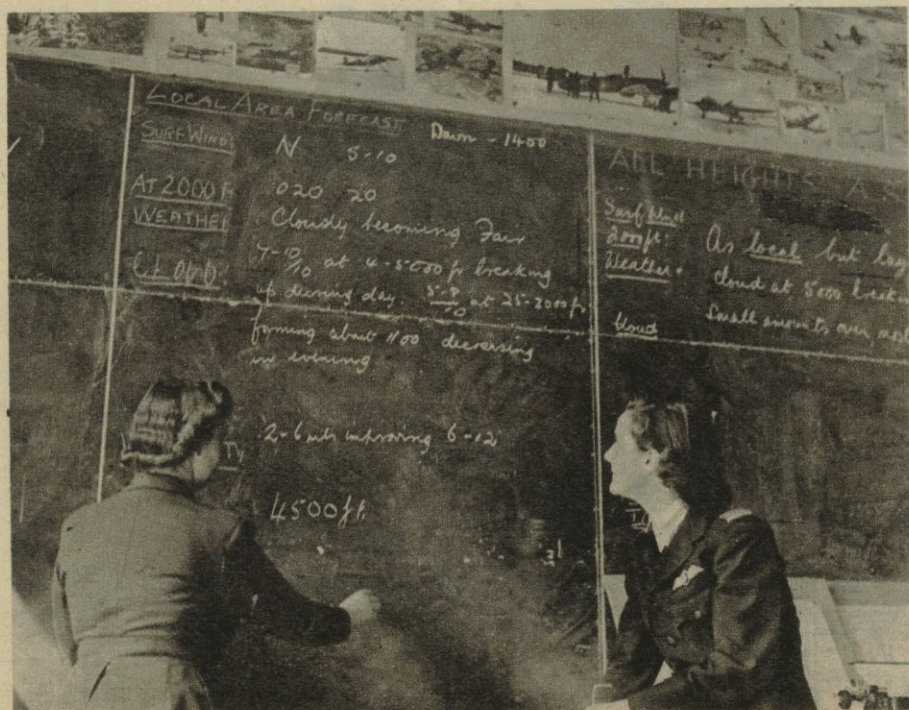 LOCAL AREA FORECAST. Dawn - 1400
SURF WIND: N 5-10
AT 2000 ft 020 20
WEATHER Cloudy becoming Fair
CLOUD: 7-10/10 at 4-5000 ft breaking
up during day. 5-8/10 at 25-3000 ft
forming about 1100 decreasing
in evening
TY 2-6 mls improving 6-12
4500 ft.
ALL HEIGHTS A.S
Surf Wind
2000 ft: As local but
Weather: cloud at 5000 break
Small amounts over
Cloud